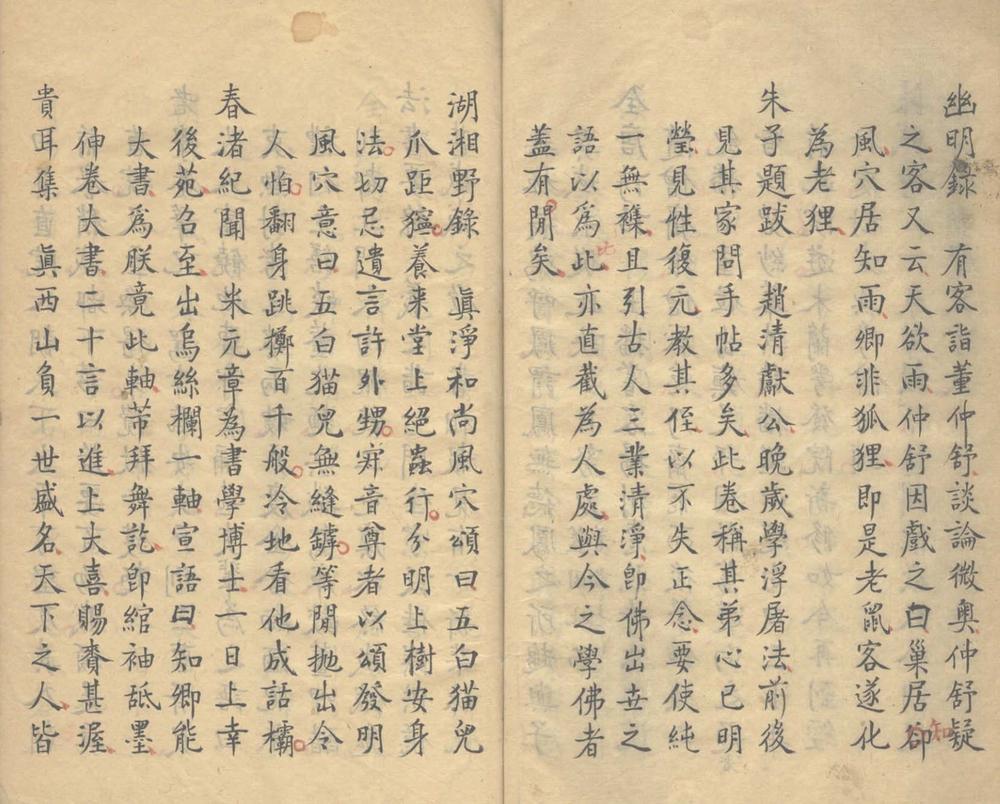 幽明錄　有客詣董仲舒談論微奧仲舒疑
之客又云天欲雨仲舒因戲之曰巢居卻
知
風穴居知雨卿非狐狸即是老鼠客遂化
為老狸
朱子題跋　趙清獻公晚歲學浮屠法前後
見其家問手帖多矣此卷稱其弟心已明
瑩見性復元教其侄以不失正念要使純
一無襍且引古人三業清淨即佛出世之
語以為此亦直截為人處與今之學佛者
此
蓋有閒矣
湖湘野錄　眞淨和尚風穴頌曰五白猫兒
爪距獰養来堂上絕蟲行分明上樹安身
法切忌遺言許外甥寂音尊者以頌發明
風穴意曰五白猫兒無縫罅等閒抛出令
人怕翻身跳擲百千般冷地看他成話欛
春渚紀聞　米元章為書學博士一日上幸
後苑召至出烏絲欄一軸宣語曰知卿能
大書爲朕竟此軸芾拜舞訖卽綰袖舐墨
伸卷大書二十言以進上大喜賜賚甚渥
貴耳集　眞西山負一世盛名天下之人皆